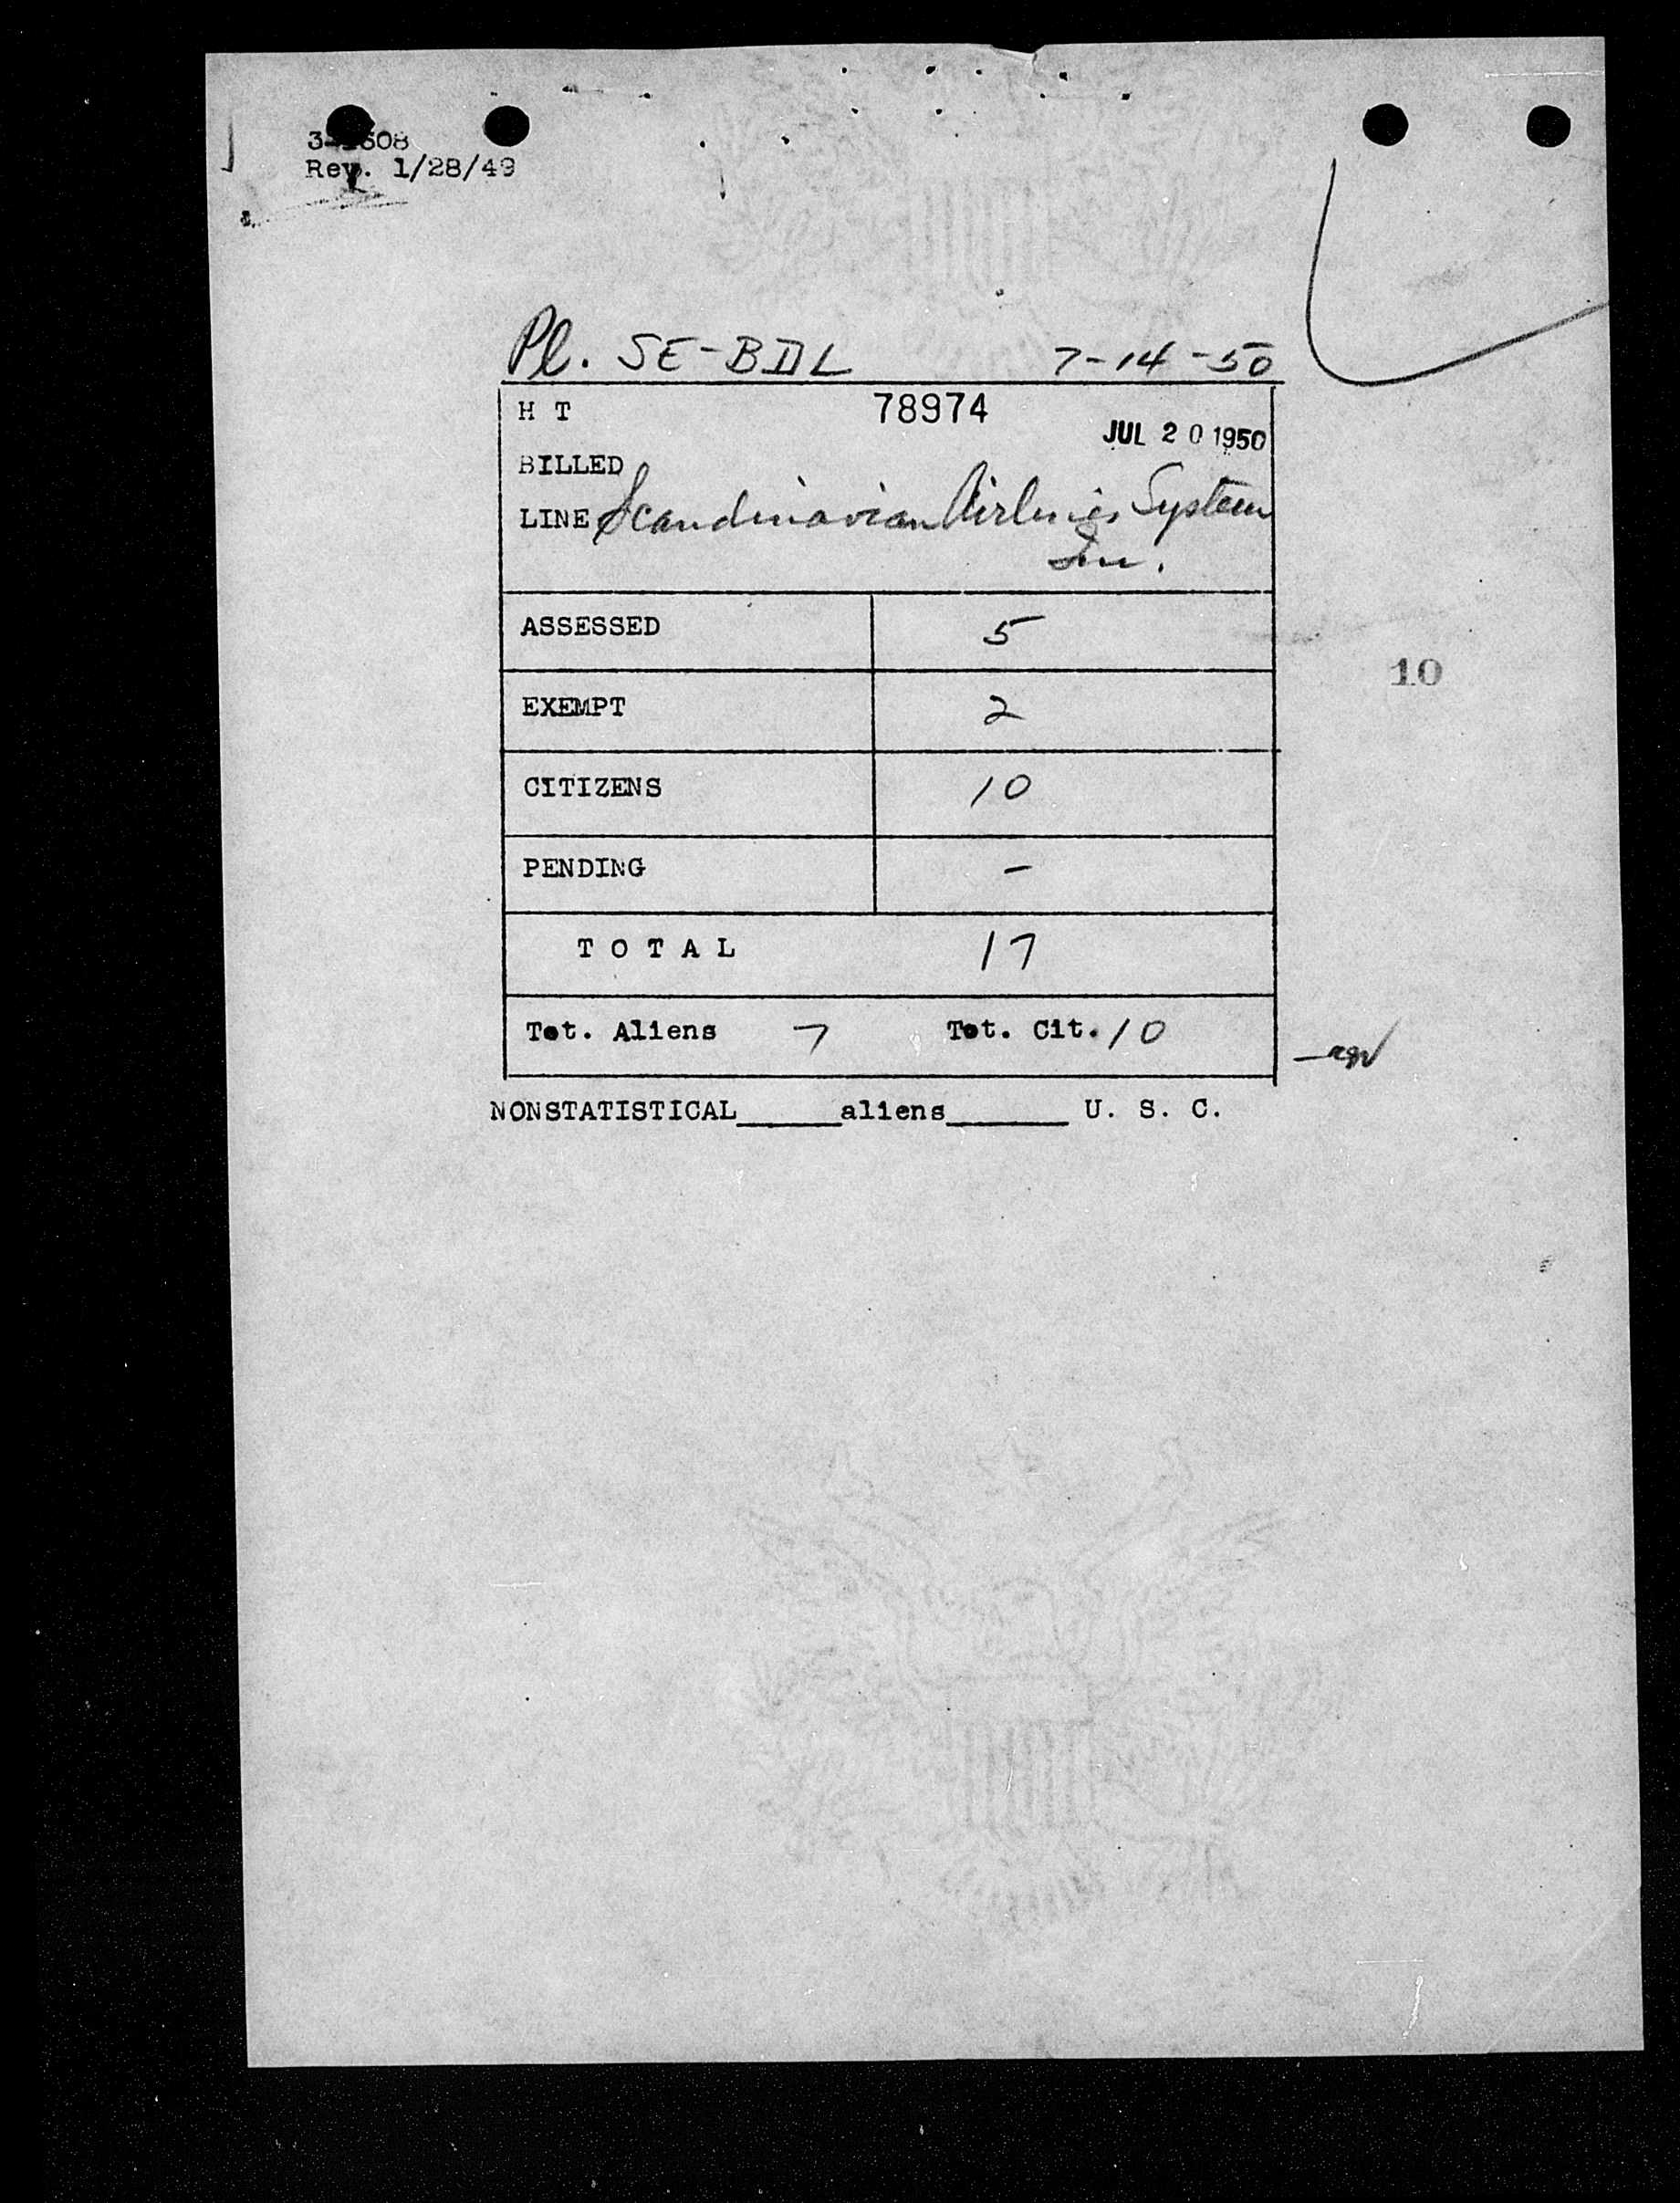 Rev. 1/28/49
Pl. SE-BDL 7-14-50
H T 78974
JUL 20 1950
BILLED
LINE Scandinavian Airlines System
Inc.
ASSESSED 5
10
EXEMPT 2
CITIZENS 10
PENDING -
TOTAL 17
Tot. Aliens 7 Tot. Cit. 10
NONSTATISTICAL______aliens_______ U. S. C.